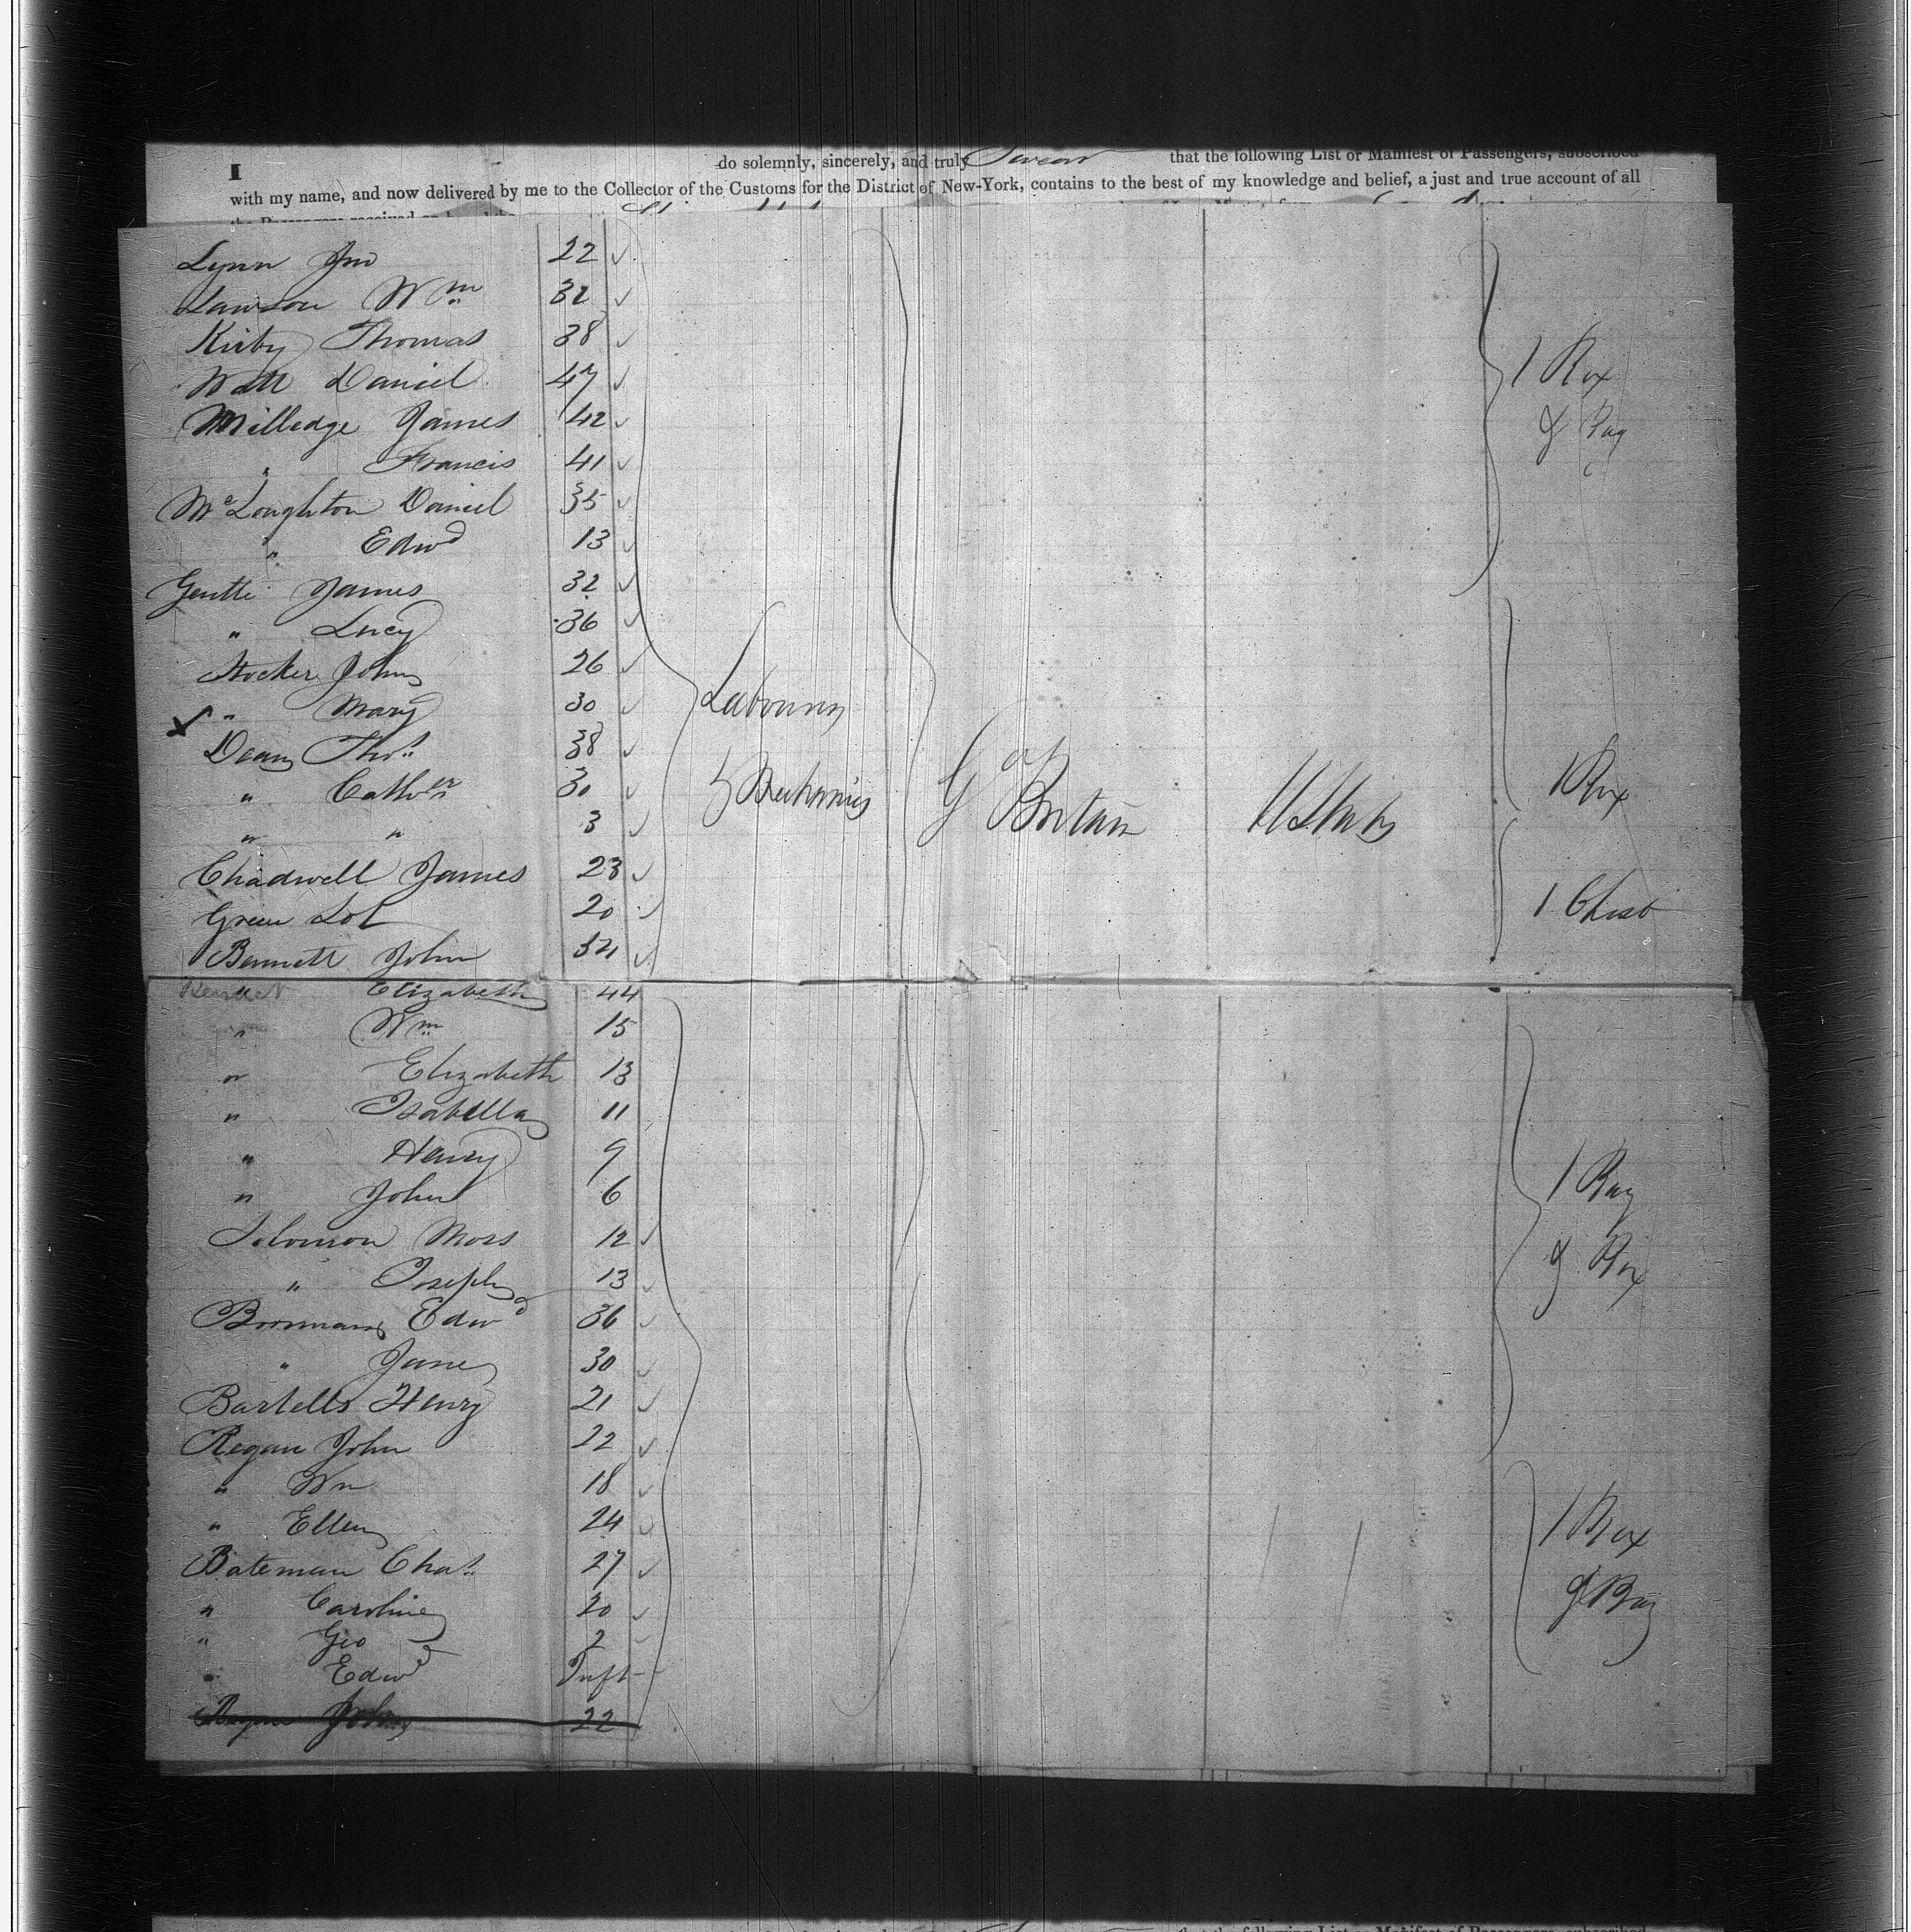 I do solemnly, sincerely, and truly Swear that the following List or Manifest of Passengers, subscribed
with my name, and now delivered by me to the Collector of the Customs for the District of New-York, contains to the best of my knowledge and belief, a just and true account of all
Lynn Jno 22
Lawson Wm 32
Kirby Thomas 38
Watt Daniel 47
Milledge James 42
" Francis 41
McLoughton Daniel 35
" Edwd 13
Gentle James 32
" Lucy 36
Stocker John 26
" Mary 30
Dean Thos 38
" Cathn 30
" " 3
Chadwell James 23
Green Lot 20
Bennett John 34
Bennett " Elizabeth 44
" Wm 15
" Elizabeth 13
" Isabella 11
" Henry 9
" John 6
Solomon Moss 12
" Joseph 13
Boorman Edwd 36
" Jane 30
Bartells Henry 21
Regan John 22
" Wm 18
" Ellen 24
Bateman Chas 27
" Caroline 20
" Geo 2
" Edwd Inft
Regan John 22
Labourers
& Mechanics
Gt Britain
U States
1 Box
& Bag
1 Box
1 Chest
1 Bag
& Box
1 Box
& Bag